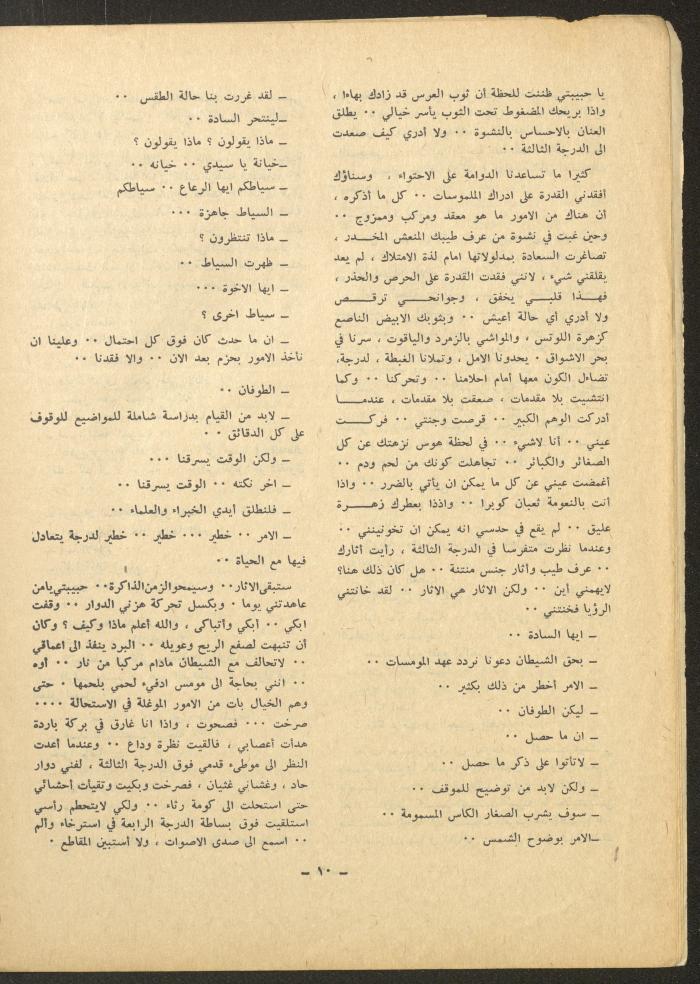 يا حبيبتي ظننت للحظة أن ثوب العرس قد زادك بهاءا ،
واذا بريحك المضغوط تحت الثوب يأسر خيالي ٠٠ يطلق
العنان بالاحساس بالنشوة ٠٠ ولا أدري كيف صعدت
الى الدرجة الثالثة ٠٠
كثيرا ما تساعدنا الدوامة على الاحتواء ، وسناؤك
أفقدني القدرة على ادراك الملموسات ٠٠ كل ما أذكره ،
أن هناك من الامور ما هو معقد ومركب وممزوج ٠٠
وحين غبت في نشوة من عرف طيبك المنعش المخـدر ،
تصاغرت السعادة بمدلولاتها امام لذة الامتلاك ، لم يعد
يقلقني شيء ، لانني فقدت القدرة على الحرص والحذر ،
فهـذا قلبـي يخفق ، وجوانحـي ترقـص
ولا أدري أي حالة أعيش ٠٠ وبثوبك الابيض الناصع
كزهرة اللوتس ، والمواشي بالزمرد والياقوت ، سرنا في
بحر الاشواق ٠ يحدونا الامل ، وتملانا الغبطة ، لدرجة،
تضاءل الكون معها أمام احلامنا ٠٠ وتحركنا ٠٠ وكما
انتشيت بلا مقدمات ، صعقت بلا مقدمات ، عندمـا
أدركت الوهم الكبير ٠٠ قرصت وجنتي ٠٠ فركـت
عيني ٠٠ أنا لاشيء ٠٠ في لحظة هوس نزهتك عن كل
الصغائر والكبائر ٠٠ تجاهلت كونك من لحم ودم ٠٠
أغمضت عيني عن كل ما يمكن ان يأتي بالضرر ٠٠ واذا
أنت بالنعومة ثعبان كوبرا ٠٠ واذذا بعطرك زهـرة
عليق ٠٠ لم يقع في حدسي انه يمكن ان تخونينني ٠٠
وعندما نظرت متفرسا في الدرجة الثالثة ، رأيت أثارك
٠٠ عرف طيب وأثار جنس منتنة ٠٠ هل كان ذلك هنا؟
لايهمني أين ٠٠ ولكن الاثار هي الاثار ٠٠ لقد خانتني
الرؤيا فخنتني ٠٠
ـ ايها السادة ٠٠
ـ بحق الشيطان دعونا نردد عهد المومسات ٠٠
ـ الامر أخطر من ذلك بكثير ٠٠
ـ ليكن الطوفان ٠٠
ـ ان ما حصل ٠٠
ـ لاتأتوا على ذكر ما حصل ٠٠
ـ ولكن لابد من توضيح للموقف ٠٠
ـ سوف يشرب الصغار الكاس المسمومة ٠٠
ـالامر بوضوح الشمس ٠٠
ـ لقد غررت بنا حالة الطقس ٠٠
ـلينتحر السادة ٠٠
ـ ماذا يقولون ؟ ماذا يقولون ؟
ـخيانة يا سيدي ٠٠ خيانه ٠٠
ـ سياطكم ايها الرعاع ٠٠ سياطكم
ـ السياط جاهزة ٠٠٠
ـ ماذا تنتظرون ؟
ـ ظهرت السياط ٠٠
ـ ايها الاخوة ٠٠٠
ـ سياط اخرى ؟
ـ ان ما حدث كان فوق كل احتمال ٠٠ وعلينا ان
نأخذ الامور بحزم بعد الان ٠٠ والا فقدنا ٠٠
ـ الطوفان ٠٠
ـ لابد من القيام بدراسة شاملة للمواضيع للوقوف
على كل الدقائق ٠٠
ـ ولكن الوقت يسرقنا ٠٠٠
ـ اخر نكته ٠٠ الوقت يسرقنا ٠٠
ـ فلنطلق أيدي الخبراء والعلماء ٠٠
ـ الامر ٠٠ خطير ٠٠٠ خطير ٠٠ خطير لدرجة يتعادل
فيها مع الحياة ٠٠
ستبقى الاثار٠٠ وسيمحو الزمن الذاكرة٠٠ حبيبتي يامن
عاهدتني يوما ٠ وبكسل تجركة هزني الدوار ٠٠ وقفت
ابكي ٠٠ أبكي وأتباكى ، والله أعلم ماذا وكيف ؟ وكان
أن تنبهت لصفع الريح وعويله ٠٠ البرد ينفذ الى اعماقي
٠٠ لاتحالف مع الشيطان مادام مركبا من نار ٠٠ أوه
٠٠ انني بحاجة الى مومس ادفيء لحمي بلحمها ٠ حتى
وهم الخيال بات من الامور الموغلة في الاستحالة ٠٠٠٠
صرخت ٠٠٠ فصحوت ، واذا انا غارق في بركة باردة
هدأت أعصابي ، فالقيت نظرة وداع ٠٠ وعندما أعدت
النظر الى موطىء قدمي فوق الدرجة الثالثة ، لفني دوار
حاد ، وغشاني غثيان ، فصرخت وبكيت وتقيأت أحشائي
حتى استحلت الى كومة رثاء ٠٠ ولكي لايتحطم رأسي
استلقيت فوق بساطة الدرجة الرابعة في استرخاء وألم
٠٠ اسمع الى صدى الاصوات ، ولا أستبين المقاطع ٠
ـ ١٠ ـ